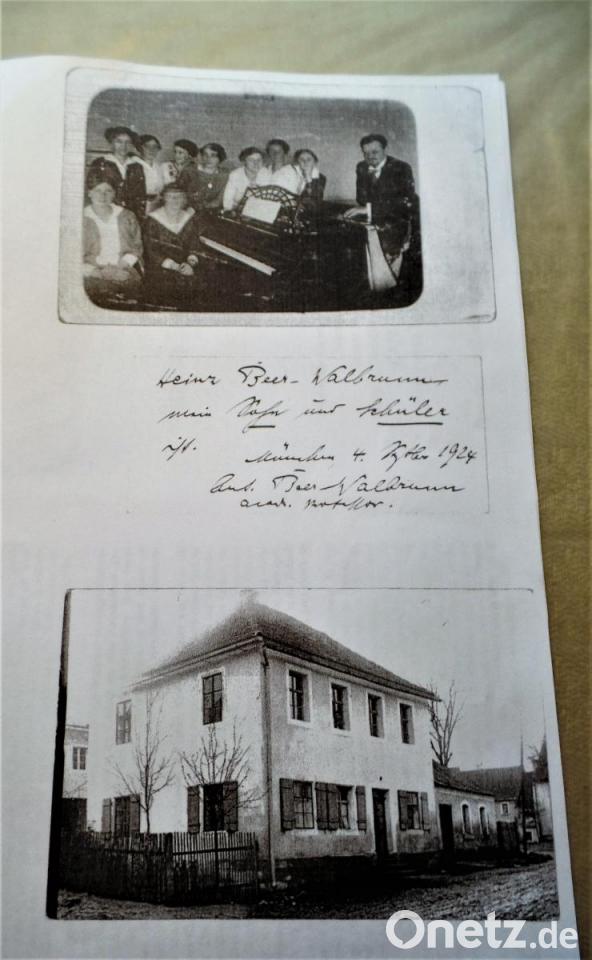 Heinz Beer-Walbrunn
mein Sohn und Schüler
ist.
München, 4. 1924
Ant. Beer-Walbrunn
acad. Professor.
Onetz.de